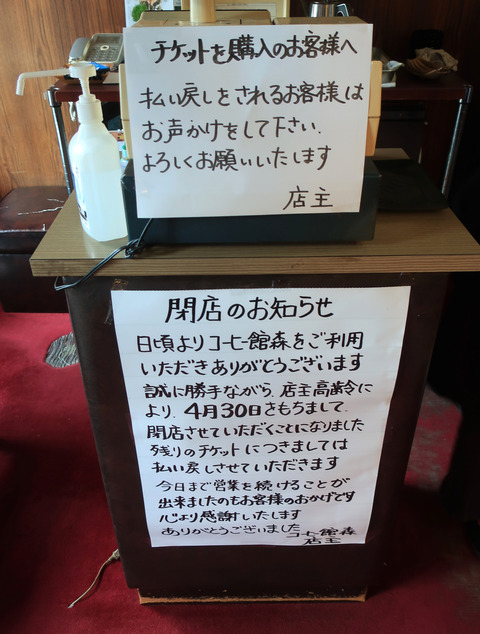 チケットを購入のお客様へ
払い戻しをされるお客様は
お声かけをして下さい.
よろしくお願いいたします
店主
閉店のお知らせ
日頃よりコーヒー館森をご利用
いただきありがとうございます
誠に勝手ながら、店主高齢に
より、4月30日をもちまして、
閉店させていただくことになりました
残りのチケットにつきましては
払い戻しさせていただきます
今日まで営業を続けることが
出来ましたのもお客様のおかげです
心より感謝いたします
ありがとうございました
コーヒー館森
店主